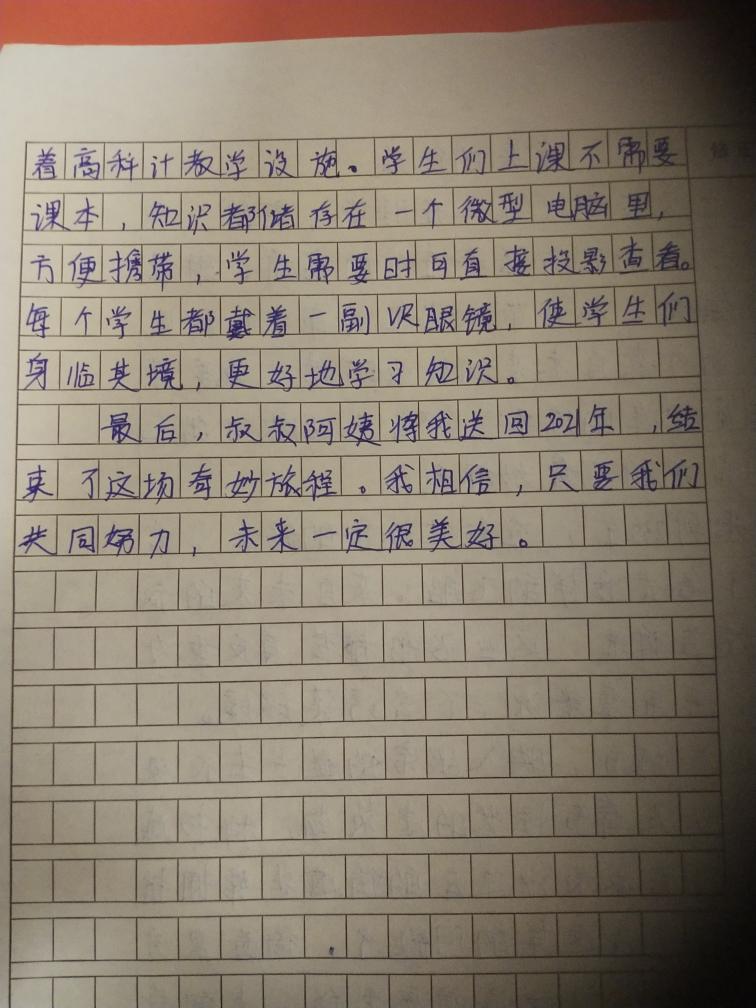 着高科计教学设施。学生们上课不需要
课本，知识都储存在一个微型电脑里，
方便携带，学生需要时可直接投影查看。
每个学生都戴着一副VR眼镜，使学生们
身临其境，更好地学习知识。
最后，叔叔阿姨将我送回2021年，结
束了这场奇妙旅程。我相信，只要我们
共同努力，未来一定很美好。